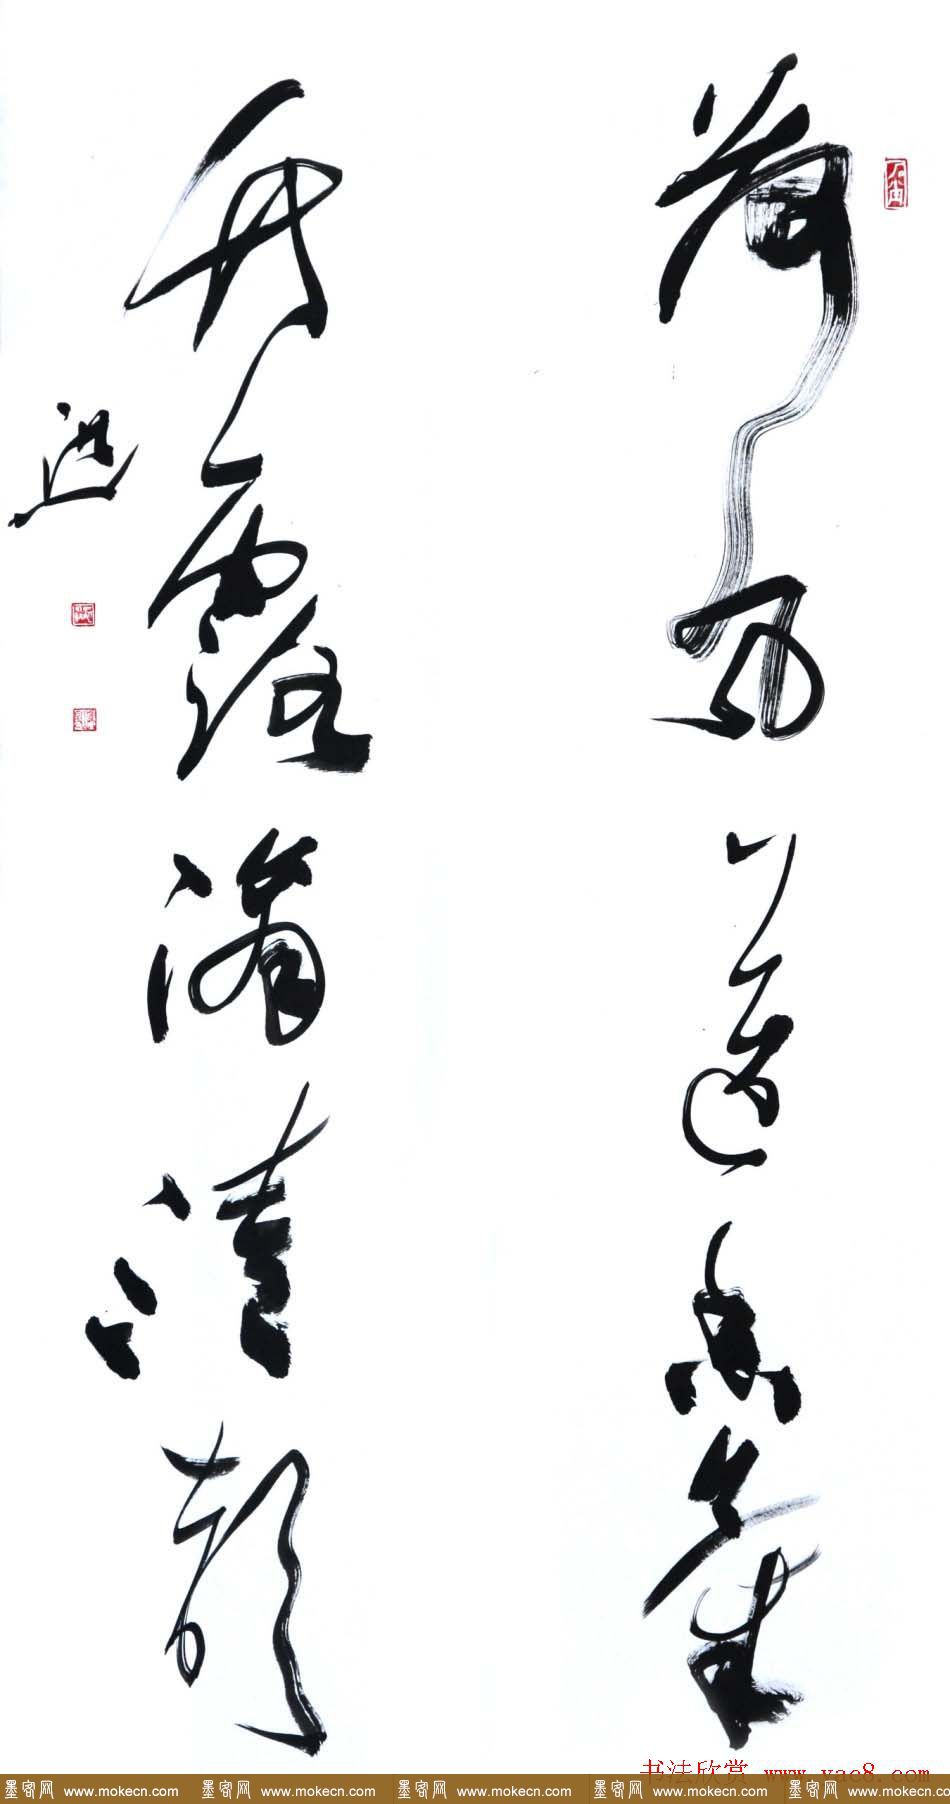 荷風送香氣
竹露滴清響
书法欣赏 www.yac8.com
墨客网 www.mokecn.com 墨客网 www.mokecn.com 墨客网 www.mokecn.com 墨客网 www.mokecn.com 墨客网 www.mokecn.co